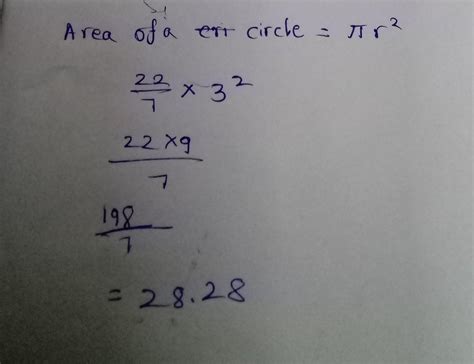 Area of a circle = πr²
22/7 × 3²
22 × 9/7
198/7
= 28.28